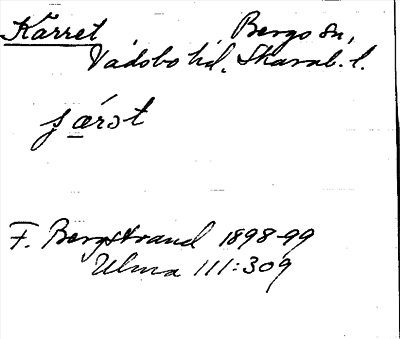 Kärret Bergs sn,
Vadsbo hd, Skarab. l.
ʃærət
F. Bergstrand 1898-99
Ulma 111:309